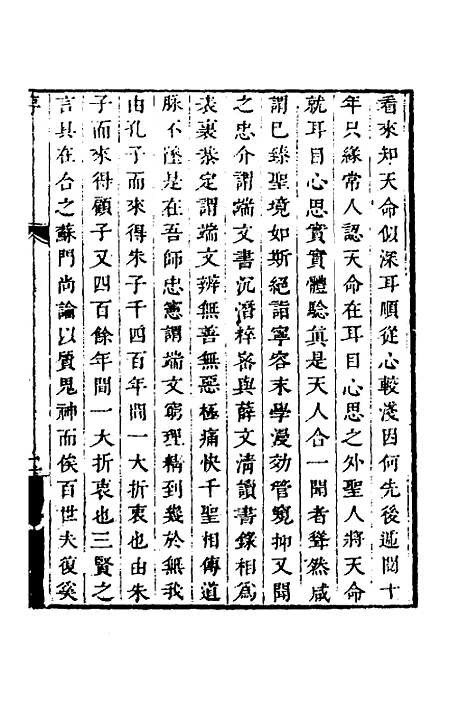 看來知天命似深耳順從心較淺因何先後遞閱十
年只緣常人認天命在耳目心思之外聖人將天命
就耳目心思實實體驗眞是天人合一聞者聳然咸
謂已臻聖境如斯絕詣寧容末學漫効管窺抑又聞
之忠介謂端文書沉潛粹密與薛文清讀書錄相爲
表裏恭定謂端文辨無善無惡極痛快千聖相傳道
脉不墜是在吾師忠憲謂端文窮理精到幾於無我
由孔子而來得朱子千四百年間一大折衷也由朱
子而來得顧子又四百餘年間一大折衷也三賢之
言具在合之蘇門尚論以質鬼神而俟百世夫復奚